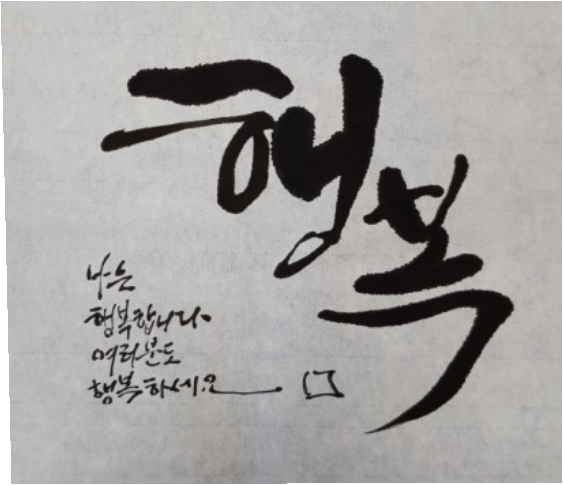 행복
나는
행복합니다.
여러분도
행복하세요